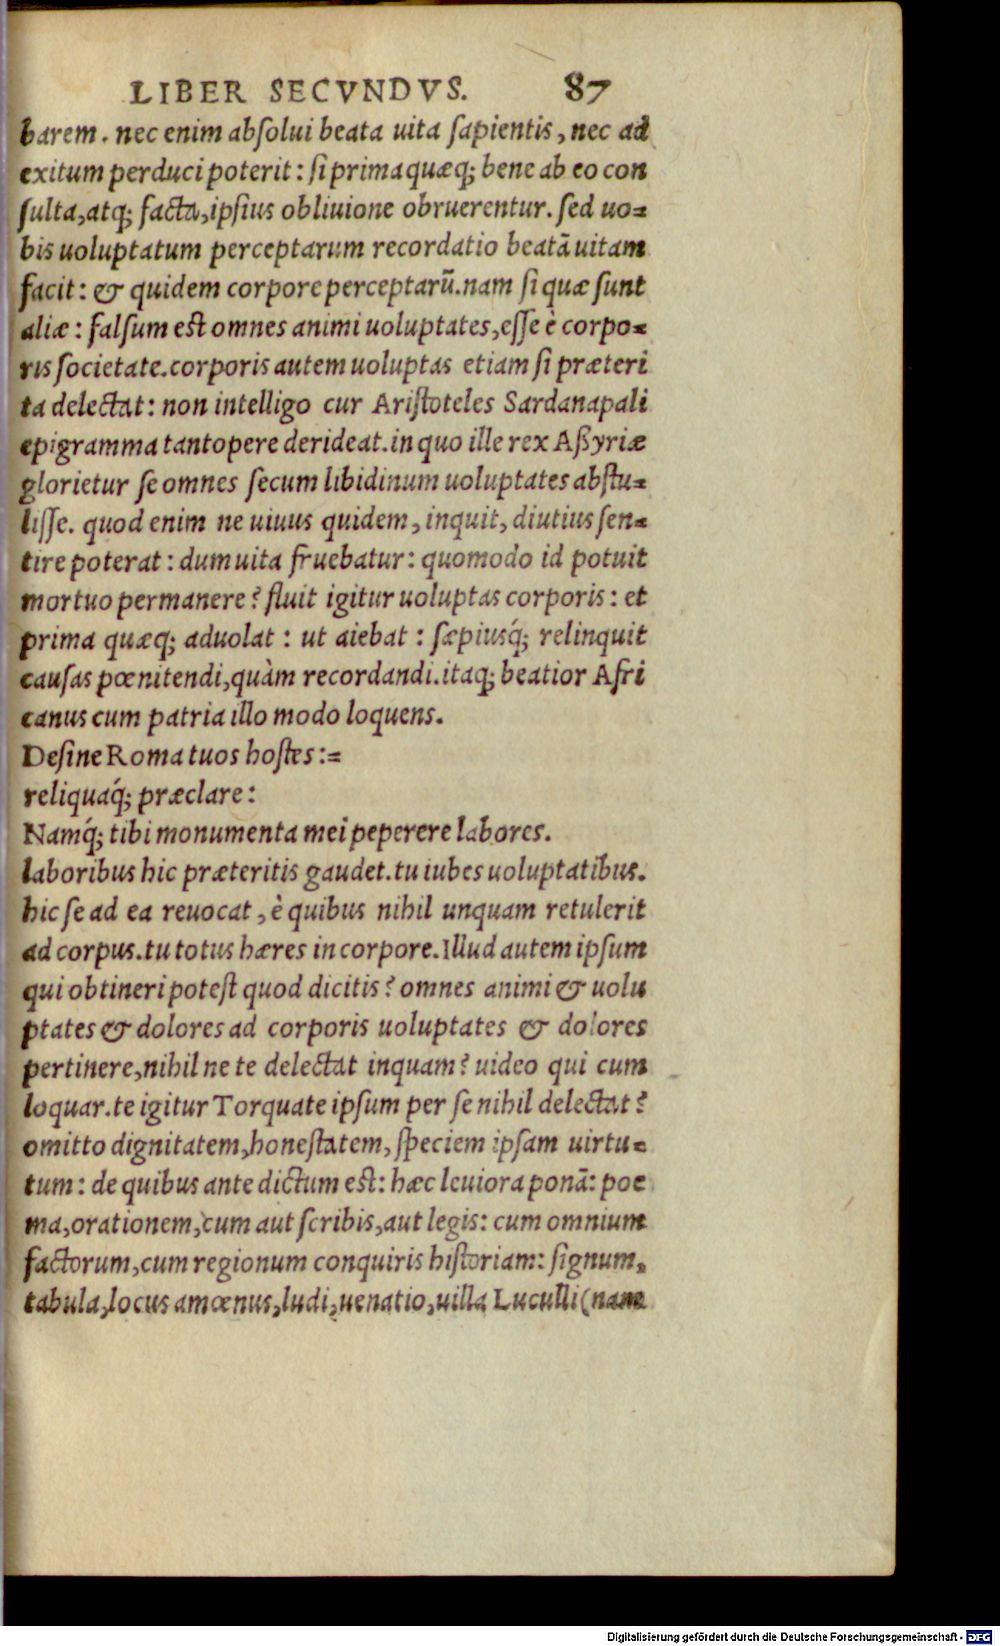 LIBER SECVNDVS. 87
barem. nec enim absolui beata uita sapientis, nec ad
exitum perduci poterit: si prima quæq; bene ab eo con
sulta, atq; facta, ipsius obliuione obruerentur. sed uo=
bis uoluptatum perceptarum recordatio beatā uitam
facit: & quidem corpore perceptarū. nam si quæ sunt
aliæ: falsum est omnes animi uoluptates, esse è corpo=
ris societate. corporis autem uoluptas etiam si præteri
ta delectat: non intelligo cur Aristoteles Sardanapali
epigramma tantopere derideat. in quo ille rex Aßyriæ
glorietur se omnes secum libidinum uoluptates abstu=
lisse. quod enim ne uiuus quidem, inquit, diutius sen=
tire poterat: dum uita fruebatur: quomodo id potuit
mortuo permanere? fluit igitur uoluptas corporis: et
prima quæq; aduolat: ut aiebat: sæpiusq́; relinquit
causas pœnitendi, quàm recordandi. itaq; beatior Afri
canus cum patria illo modo loquens.
Desine Roma tuos hostes:=
reliquaq́; præclare:
Namq́; tibi monumenta mei peperere labores.
laboribus hic præteritis gaudet. tu iubes uoluptatibus.
hic se ad ea reuocat, è quibus nihil unquam retulerit
ad corpus. tu totus hæres in corpore. Illud autem ipsum
qui obtineri potest quod dicitis? omnes animi & uolu
ptates & dolores ad corporis uoluptates & dolores
pertinere, nihil ne te delectat inquam? uideo qui cum
loquar. te igitur Torquate ipsum per se nihil delectat?
omitto dignitatem, honestatem, speciem ipsam uirtu=
tum: de quibus ante dictum est: hæc leuiora ponā: poe
ma, orationem, cum aut scribis, aut legis: cum omnium
factorum, cum regionum conquiris historiam: signum,
tabula, locus amœnus, ludi, uenatio, uilla Luculli (nam
Digitalisierung gefördert durch die Deutsche Forschungsgemeinschaft - DFG